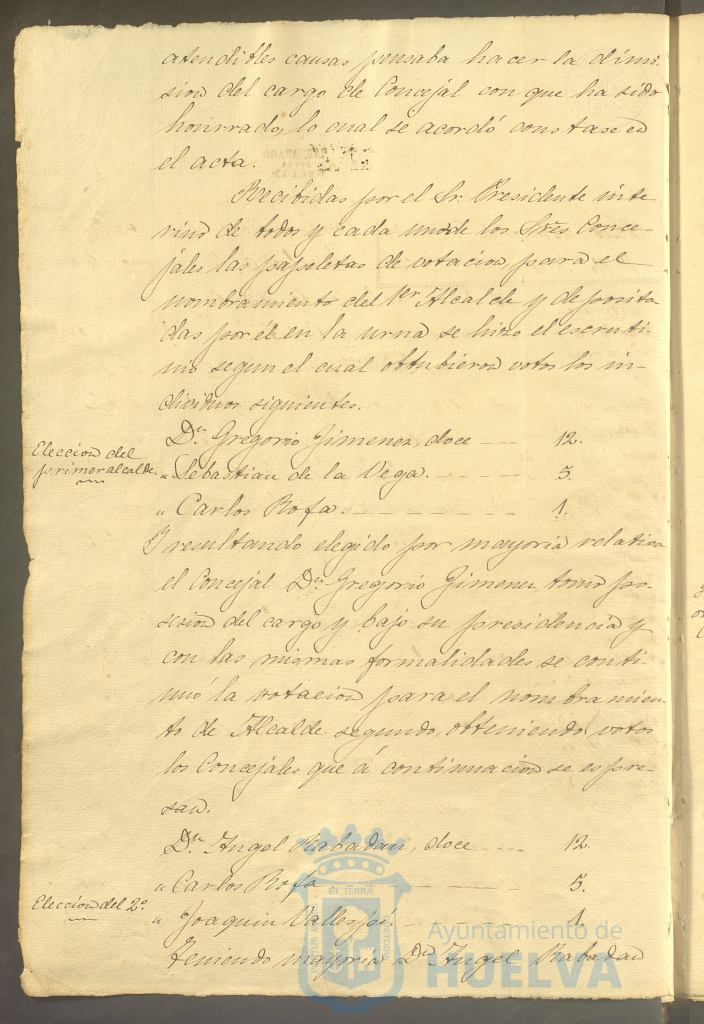 atendibles causas pensaba hacer la dimi-
sion del cargo de Concejal con que ha sido
honrrado, lo cual se acordó constase en
el acta.
Recibidas por el Sr. Presidente inte
rino de todos y cada uno de los Sres Conce-
jales las papeletas de votacion para el
nombramiento del 1er Alcalde y deposita
das por él en la urna se hizo el escruti-
nio segun el cual obtubieron votos los in-
dividuos siguientes.
Dn Gregorio Jimenez, doce 12.
Eleccion del
primer alcalde.
" Sebastian de la Vega. 5.
" Carlos Rofa. 1.
Y resultando elegido por mayoria relativa
el Concejal Dn Gregorio Jimenez, tomo po-
sision del cargo y bajo su presidencia y
con las mismas formalidades se conti-
nuó la votacion para el nombramien
to de Alcalde segundo, obteniendo votos
los Concejales que á continuacion se espre-
san.
Dn Angel Rabadan, doce 12.
" Carlos Rofa 5.
Eleccion del 2º
" Joaquin 1.
Teniendo mayoria Dn Angel Rabadan
ET TERRÆ
Ayuntamiento de
HUELVA